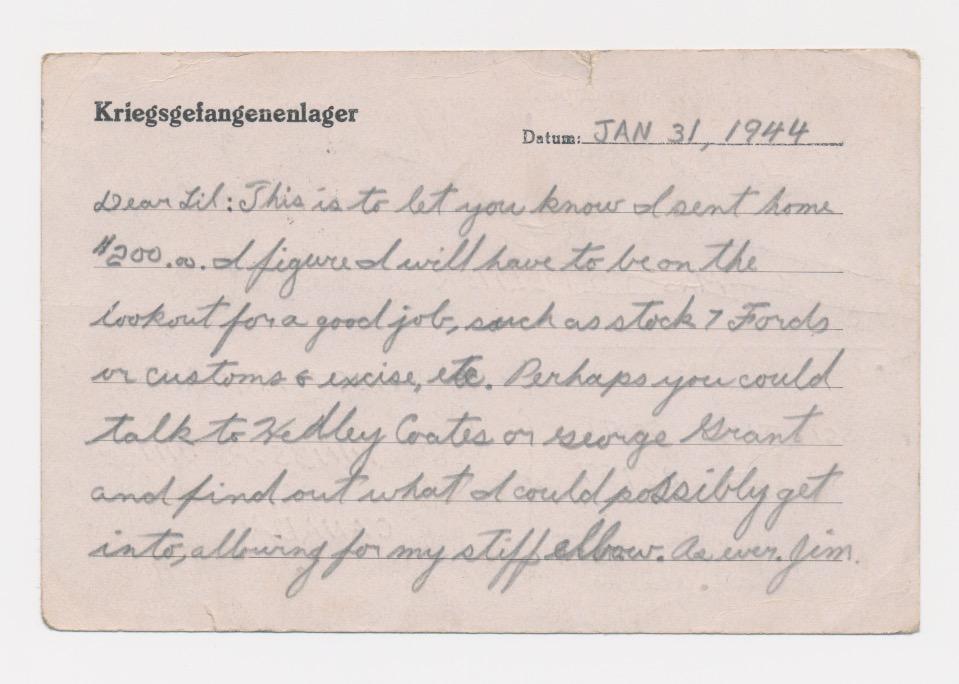 Kriegsgefangenenlager
Datum: JAN 31, 1944
Dear Lil: This is to let you know I sent home
$200.00. I figure I will have to be on the
lookout for a good job, such as stock 7 Fords
or customs & excise, etc. Perhaps you could
talk to Hedley Coates or George Grant
and find out what I could possibly get
into, allowing for my stiff elbow. As ever. Jim.